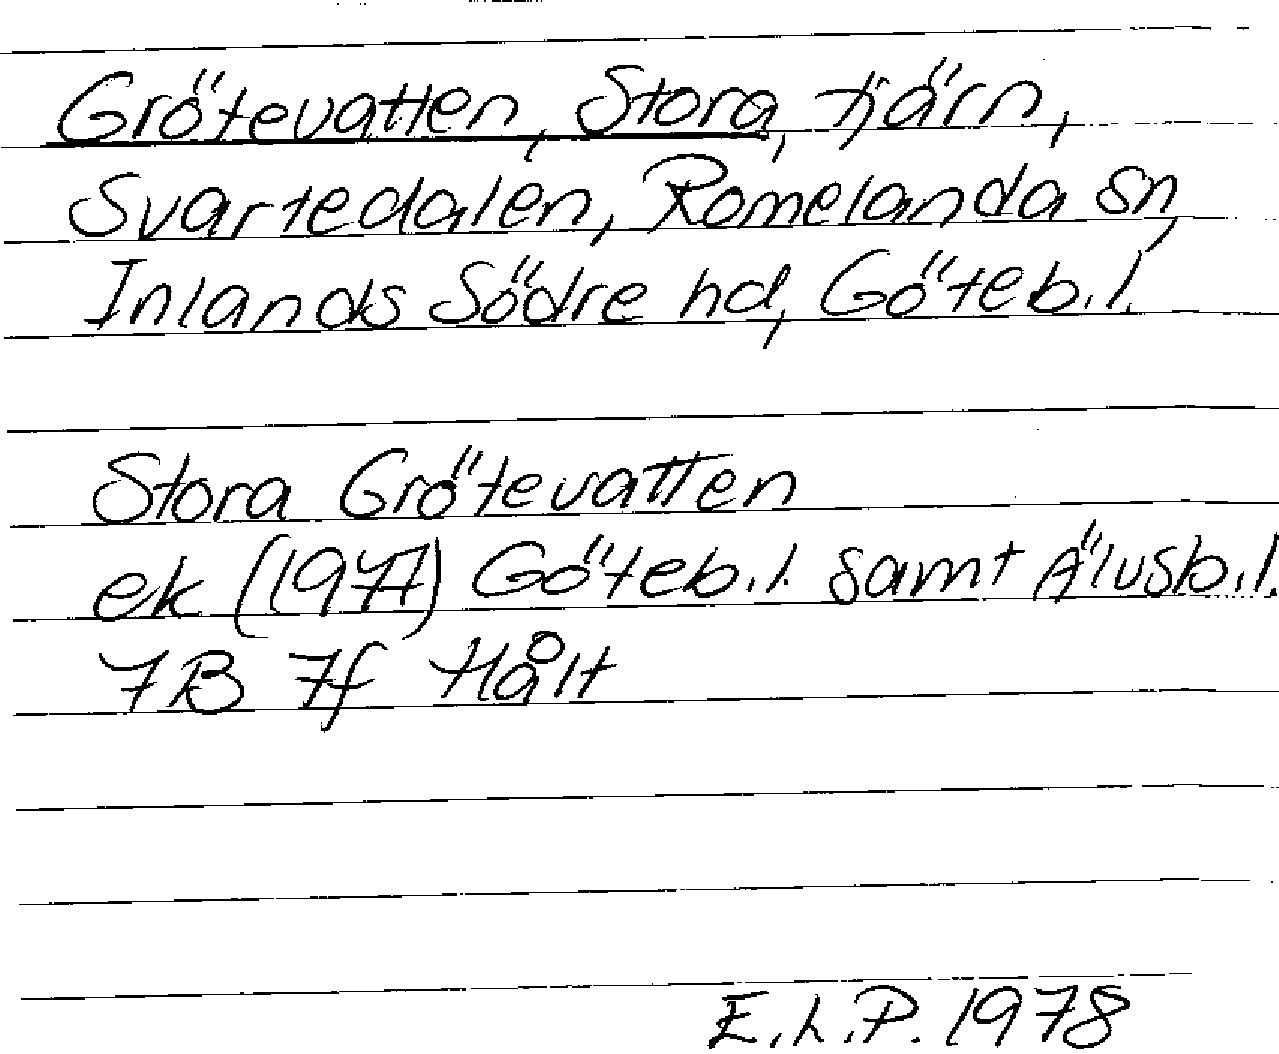 Grötevatten, Stora, tjärn,
Svartedalen, Romelanda sn,
Inlands Södre hd, Göteb.l.
Stora Grötevatten
ek (1977) Göteb.l. samt Älvsb.l.
7B 7f Hålt
E.L.P. 1978